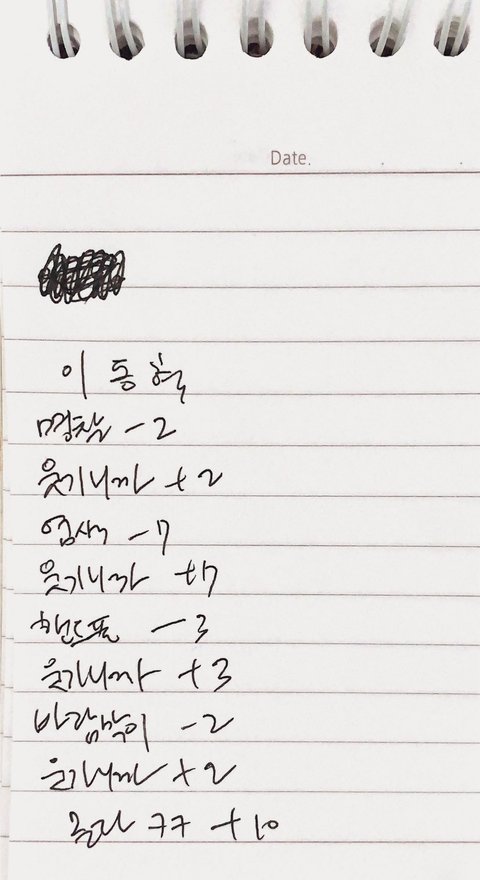 Date.
이동혁
명찰 -2
웃기니까 +2
염색 -7
웃기니까 +7
핸드폰 -3
웃기니까 +3
바람막이 -2
웃기니까 +2
ㅋㅋ +10